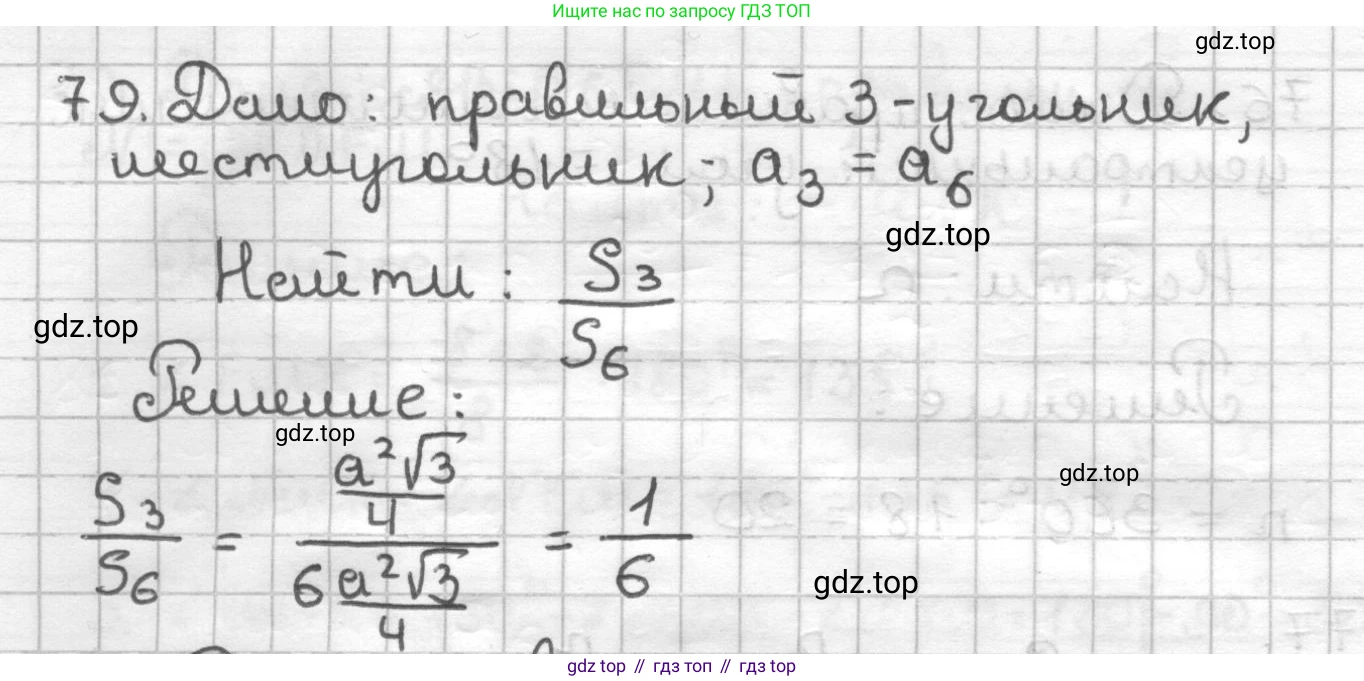 Ищите нас по запросу ГДЗ ТОП
gdz.top
79. Дано: правильный 3-угольник,
шестиугольник; a₃ = a₆
gdz.top
Найти: S₃/S₆
gdz.top
Решение:
gdz.top
gdz.top
S₃/S₆ = (a²√3/4)/(6 a²√3/4) = 1/6
gdz.top
gdz top // гдз топ // гдз top